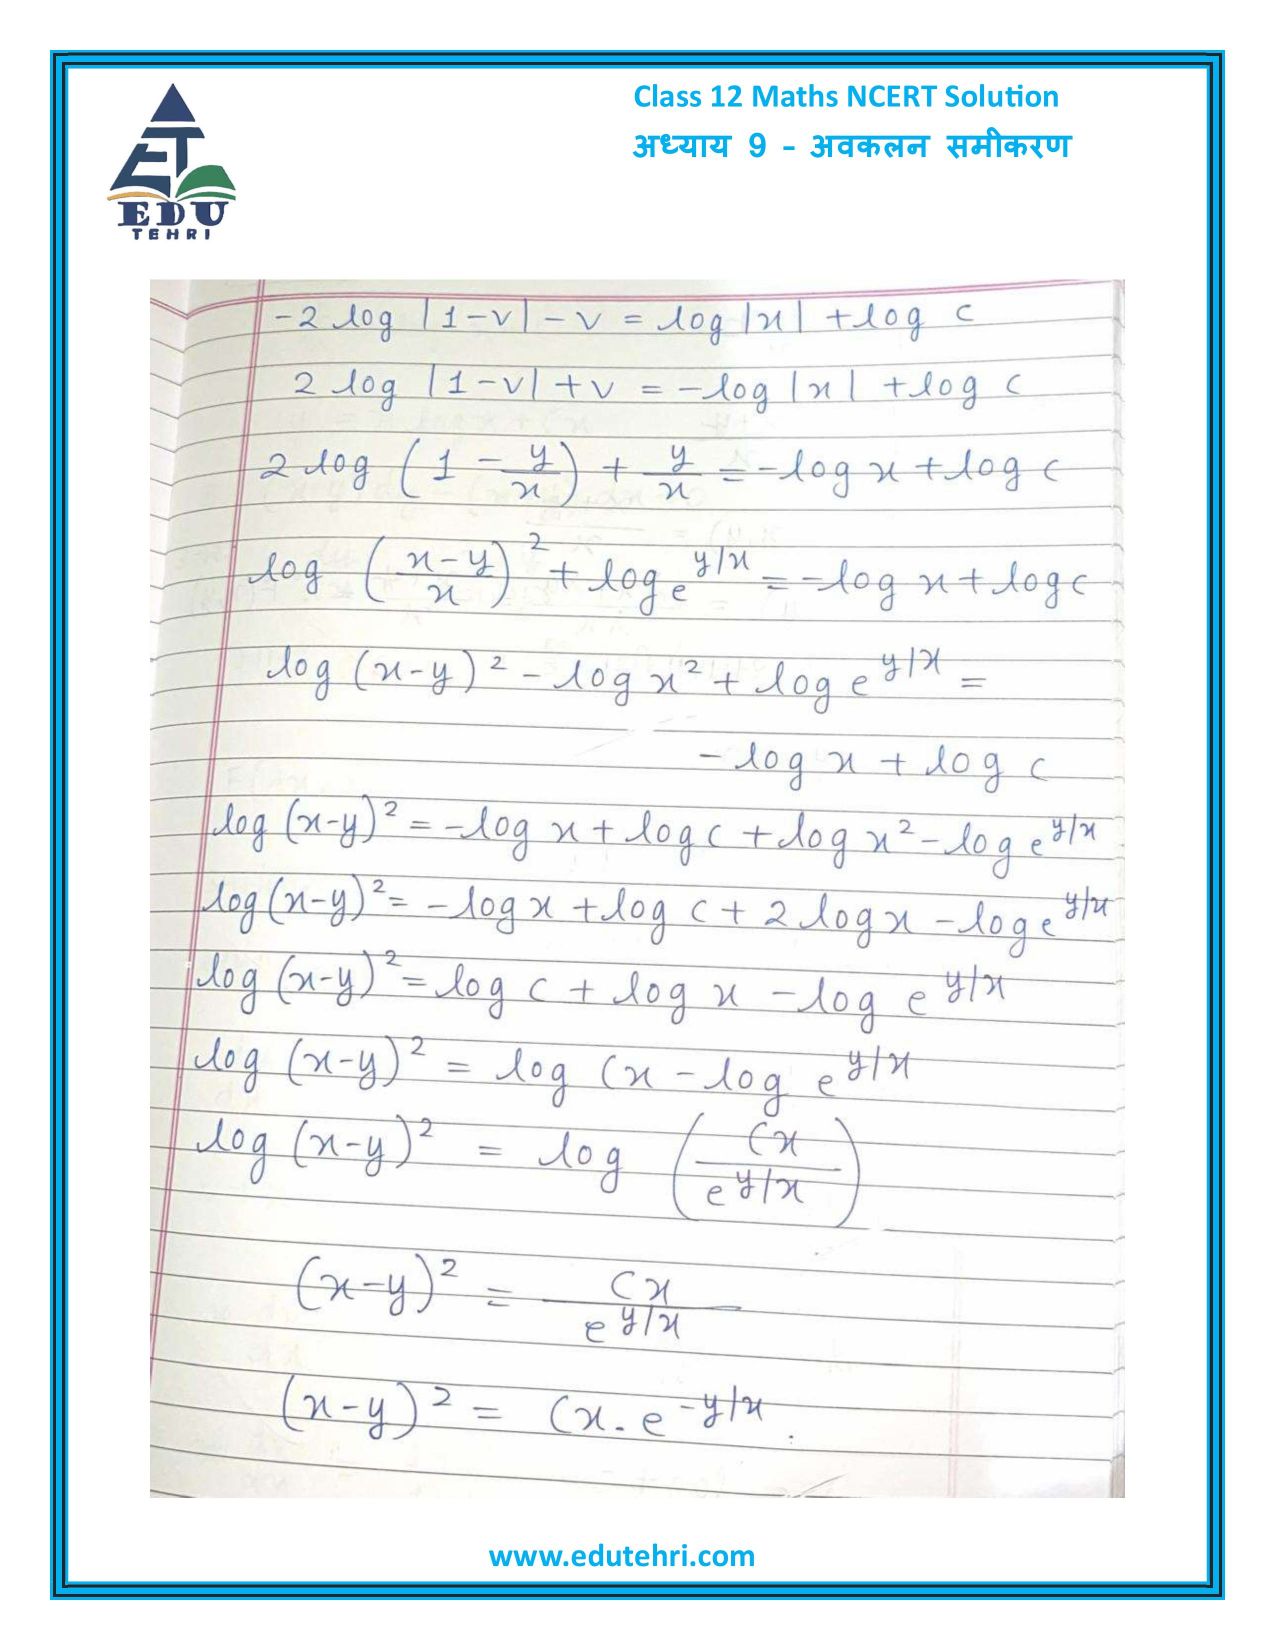 Class 12 Maths NCERT Solution
अध्याय 9 - अवकलन समीकरण
EDU
TEHRI
-2 log |1-v| - v = log |x| + log c
2 log |1-v| + v = -log |x| + log c
2 log (1 - y/x) + y/x = -log x + log c
log ((x-y)/x)² + log e^y/x = -log x + log c
log (x-y)² - log x² + log e^y/x =
-log x + log c
log (x-y)² = -log x + log c + log x² - log e^y/x
log (x-y)² = -log x + log c + 2 log x - log e^y/x
log (x-y)² = log c + log x - log e^y/x
log (x-y)² = log cx - log e^y/x
log (x-y)² = log (cx/e^y/x)
(x-y)² = cx/e^y/x
(x-y)² = cx. e^-y/x.
www.edutehri.com